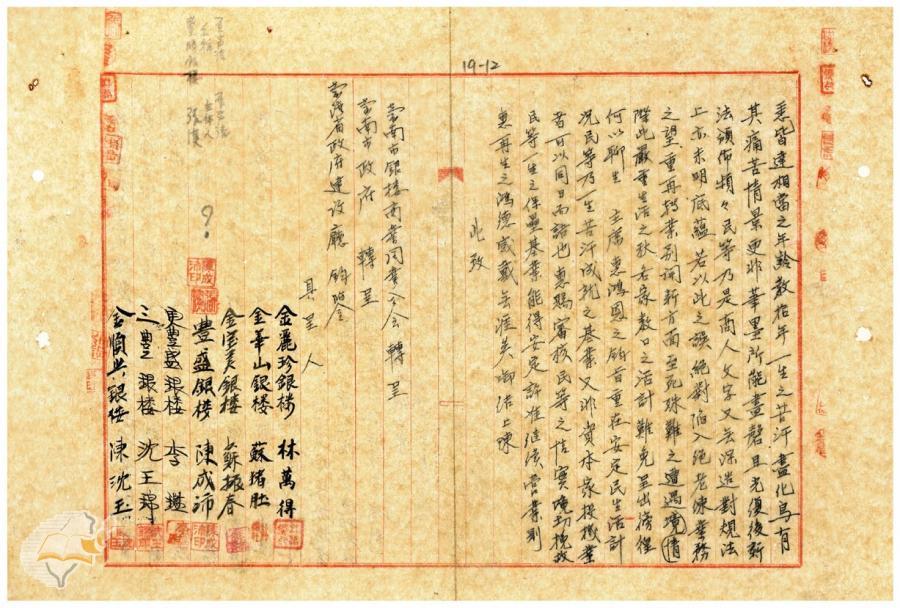 19-12
悉皆達相當之年齡數拾年一生之苦汗盡化烏有
其痛苦情景更非筆墨所能盡罄且光復後新
法頒佈頻々民等乃是商人文字又無深造對規法
上亦未明底蘊若以此之誤絕對陷入絕老凍業務
之望重再轉業別詞新方面至死殊難之遭遇境情
際此嚴重生活之秋吞家數口之活計難免呈出徬徨
何以聊生 主席惠鴻恩之餘首重在安定民生活計
況民等乃一生苦汗成就之基業又非資本家投機業
者可以同日而語也惠賜審核民等之情實境切挽救
民等一生之保壘基業能得安定許准繼續營業則
惠再生之鴻德感戴無涯矣啣結上陳
此致
臺南市銀樓商業同業公會 轉呈
臺南市政府 轉呈
臺灣省政府建設廳 鈞啟
具呈人
金麗珍銀樓 林萬得
金華山銀樓 蘇猪肚
金寶美銀樓 蘇振春
豐盛銀樓 陳成沛
東豐盛銀樓 李
三豐銀樓 沈王錦
金順興銀樓 陳沈玉
?